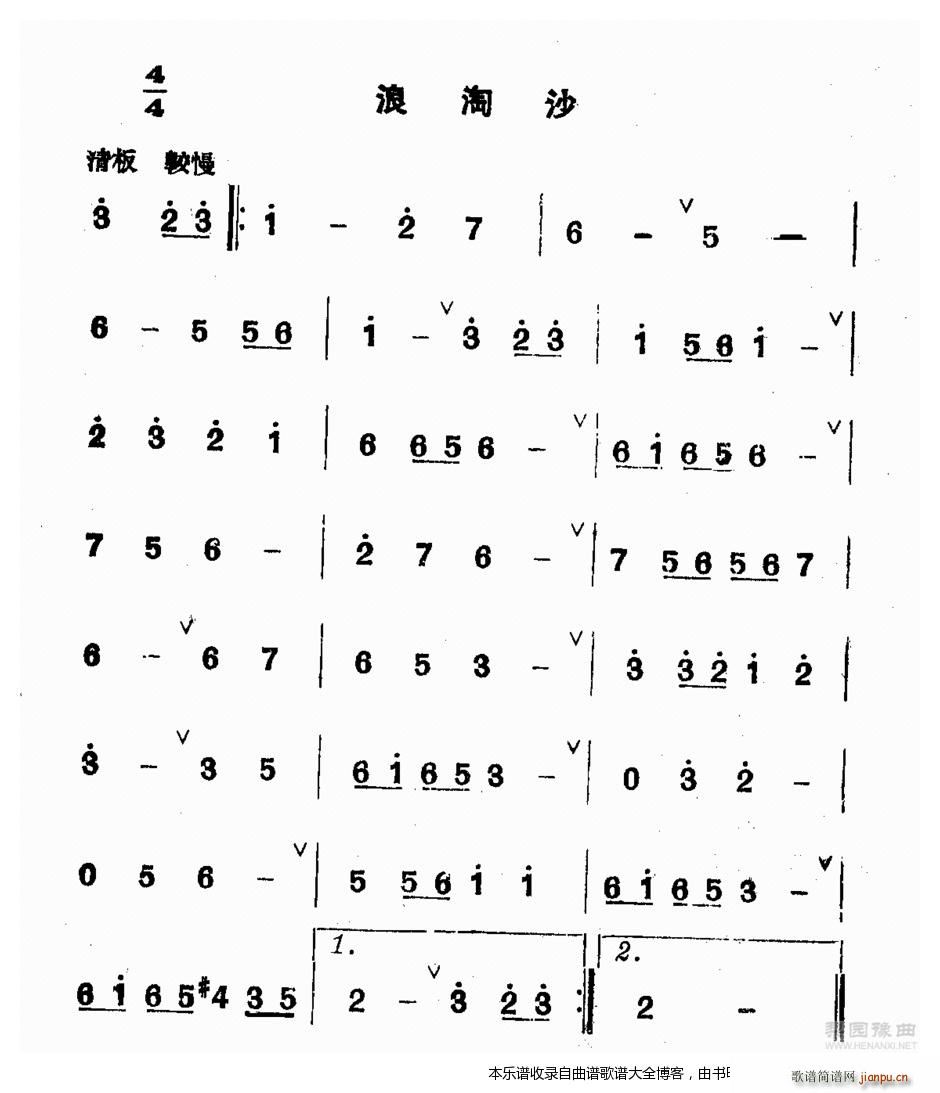 4/4 浪淘沙
清板 較慢
3̇ 2̇ 3̇ ‖: 1̇ – 2̇ 7 | 6 – ∨ 5 – |
6 – 5 5 6 | 1̇ – ∨ 3̇ 2̇ 3̇ | 1̇ 5 6 1̇ – ∨ |
2̇ 3̇ 2̇ 1̇ | 6 6 5 6 – ∨ | 6 1̇ 6 5 6 – ∨ |
7 5 6 – | 2̇ 7 6 – ∨ | 7 5 6 5 6 7 |
6 – ∨ 6 7 | 6 5 3 – ∨ | 3̇ 3̇ 2̇ 1̇ 2̇ |
3̇ – ∨ 3 5 | 6 1̇ 6 5 3 – ∨ | 0 3̇ 2̇ – |
0 5 6 – ∨ | 5 5 6 1̇ 1̇ | 6 1̇ 6 5 3 – ∨ |
1. 2.
6 1̇ 6 5 #4 3 5 | 2 – ∨ 3̇ 2̇ 3̇ :‖ 2 – ‖
梨园豫曲
WWW.HENANXI.NET
本乐谱收录自曲谱歌谱大全博客，由书
歌谱简谱网 jianpu.cn